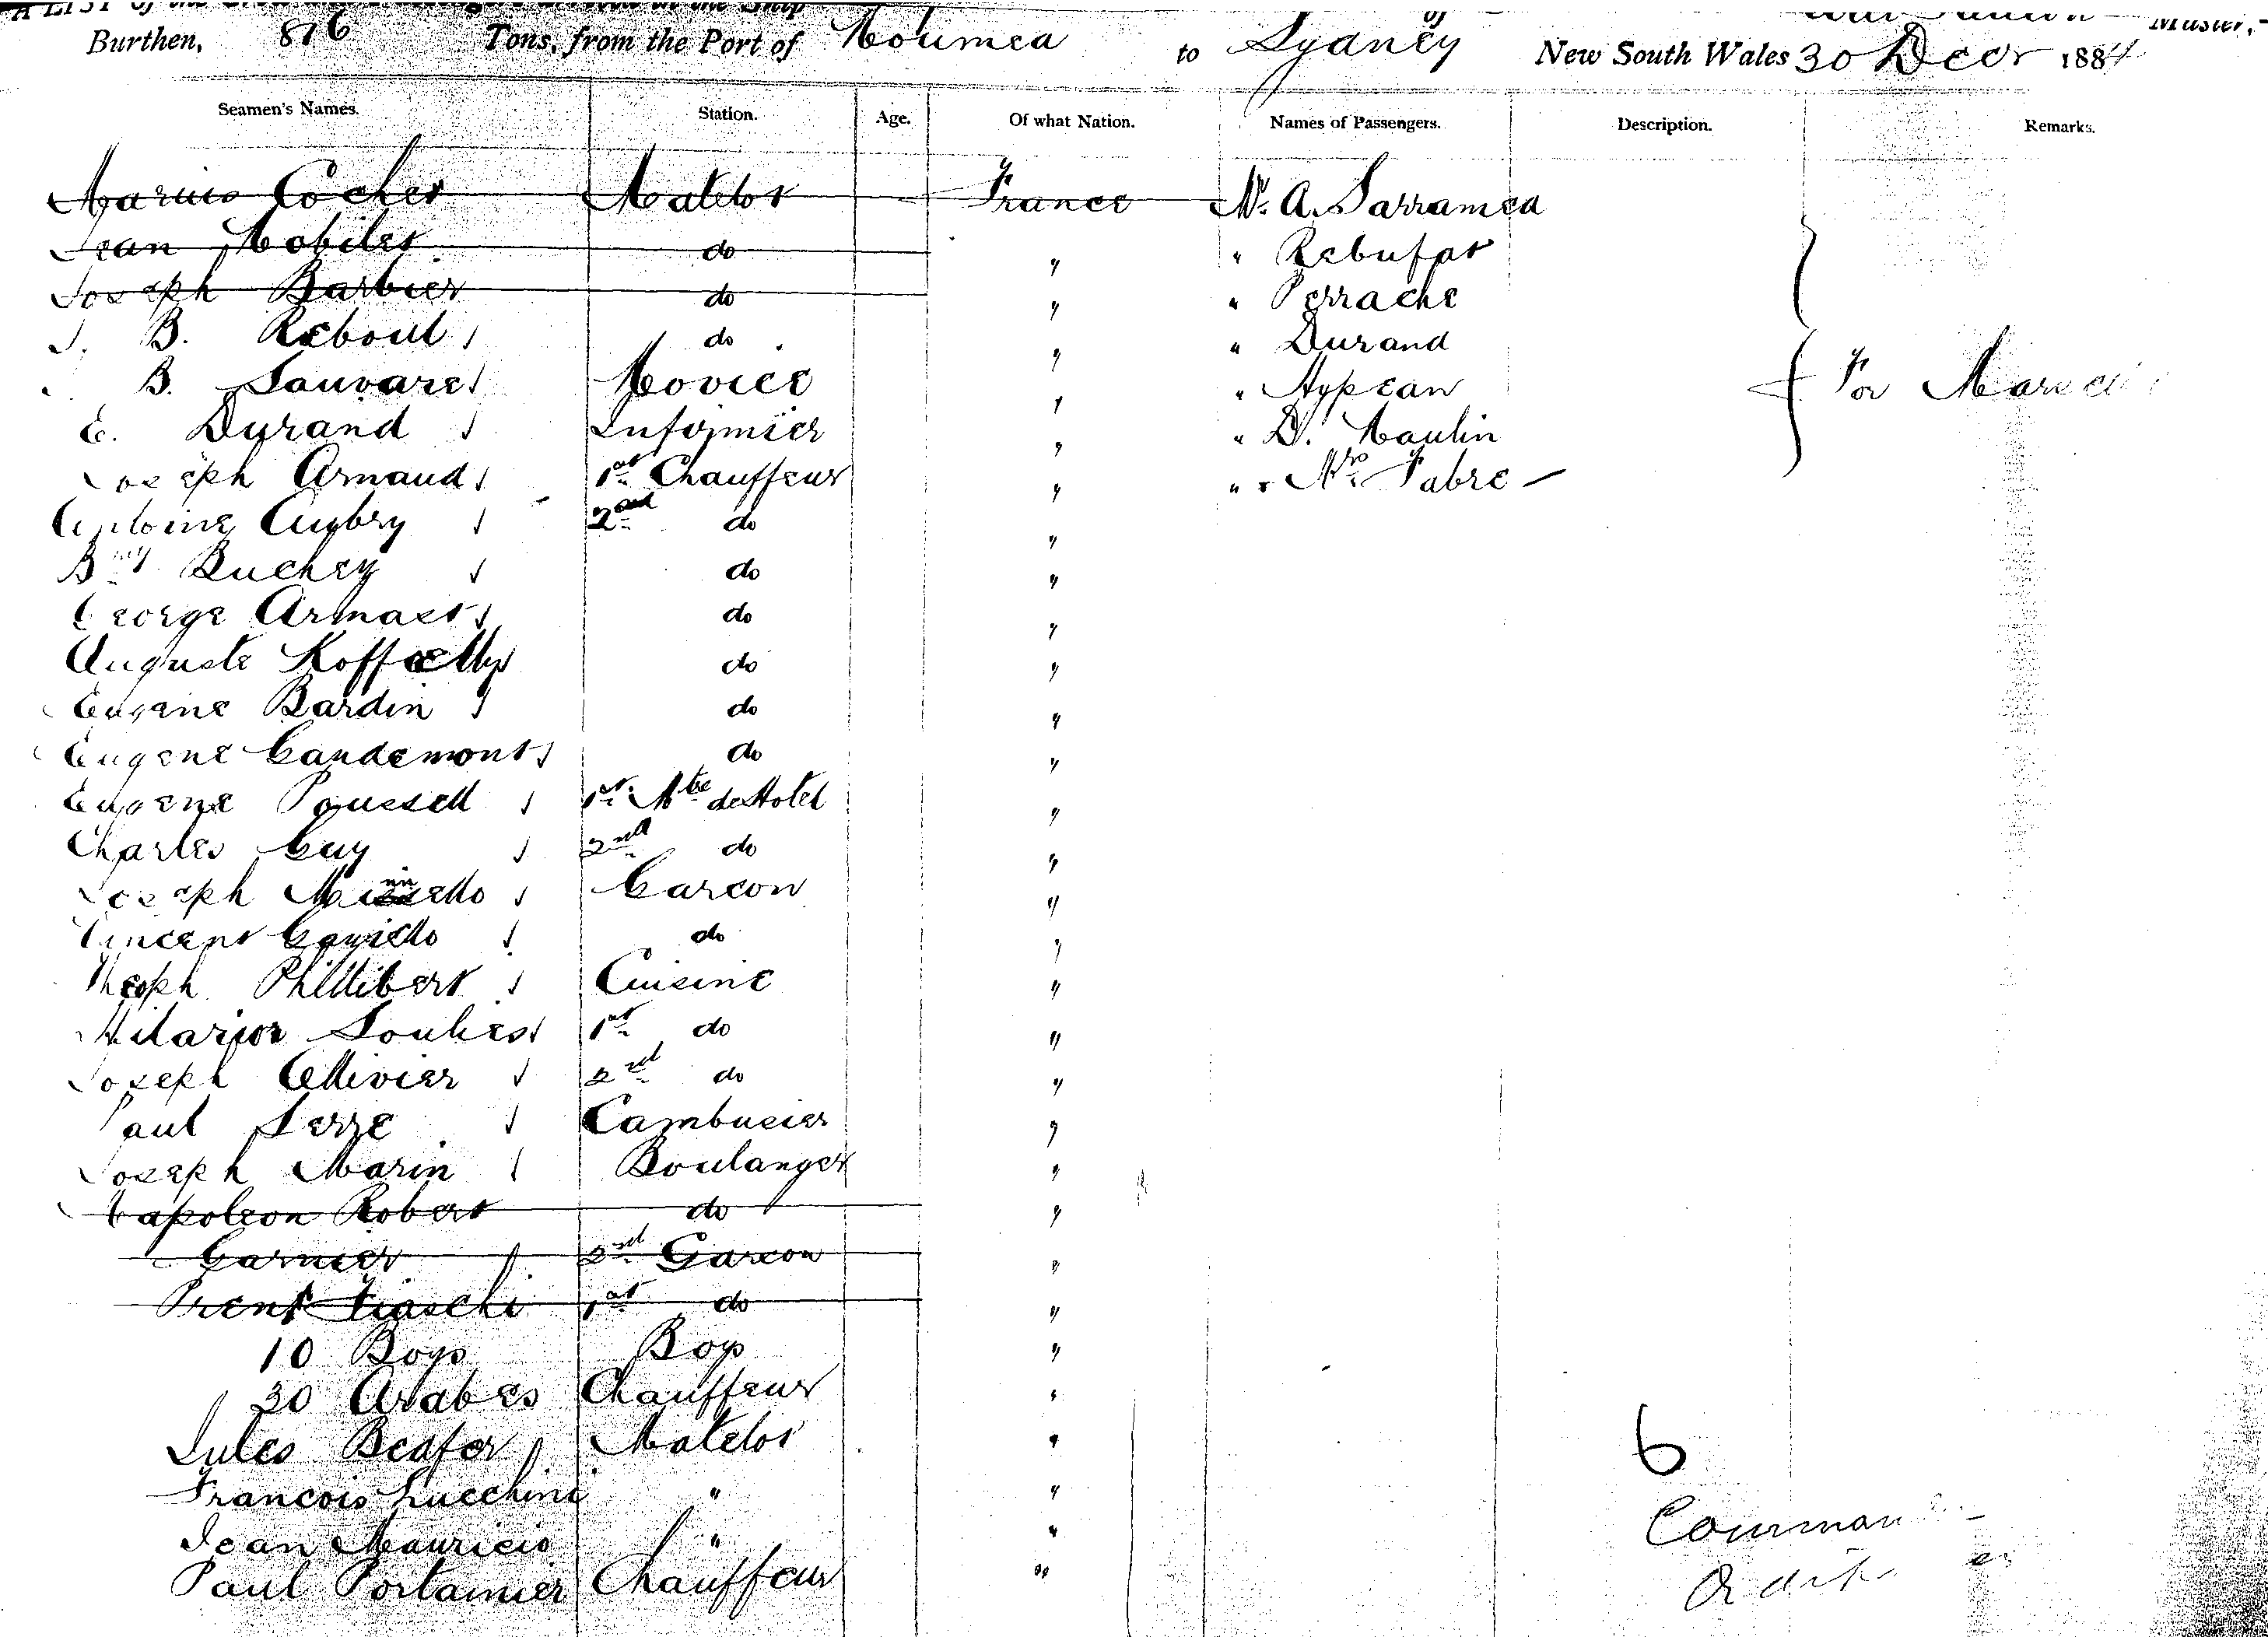 A LIST of the Ship
Burthen, 876 Tons, from the Port of Noumea to Sydney New South Wales 30 Decr 1884 Master,
Seamen's Names. Station. Age. Of what Nation. Names of Passengers. Description. Remarks.
Marius Cocher Matelot France Mr. A. Sarramea
Jean Nobiles do " " Rebufat
Joseph Barbier do " " Perrache
J. B. Reboul do " " Durand
B. Sauvaret Novice " " Hypean For
E. Durand Infirmier " " D. Naulin
Joseph Arnaud 1st Chauffeur " " Mrs Fabre
Antoine Aubry 2nd do "
Bmy Buchey do "
George Armaet do "
Auguste Koffaelly do "
Eugene Bardin do "
Eugene Gandemont do "
Eugene Poussell 1st Mtre de Hotel "
Charles Guy 2nd do "
Joseph Garcon "
Vincent do "
Theoph Phillibert Cuisine "
Hilarion Soulies 1st do "
Joseph Ollivier 2nd do "
Paul Serre Cambusier "
Joseph Marin Boulanger "
Napoleon Robert do "
Garnier 2nd Garcon "
Prent Fiaschi 1st do "
10 Boys Boy "
30 Arabes Chauffeur "
Jules Beafor Matelot "
6
Francois Lucchini " "
Jean Mauricio " "
Paul Portainier Chauffeur "